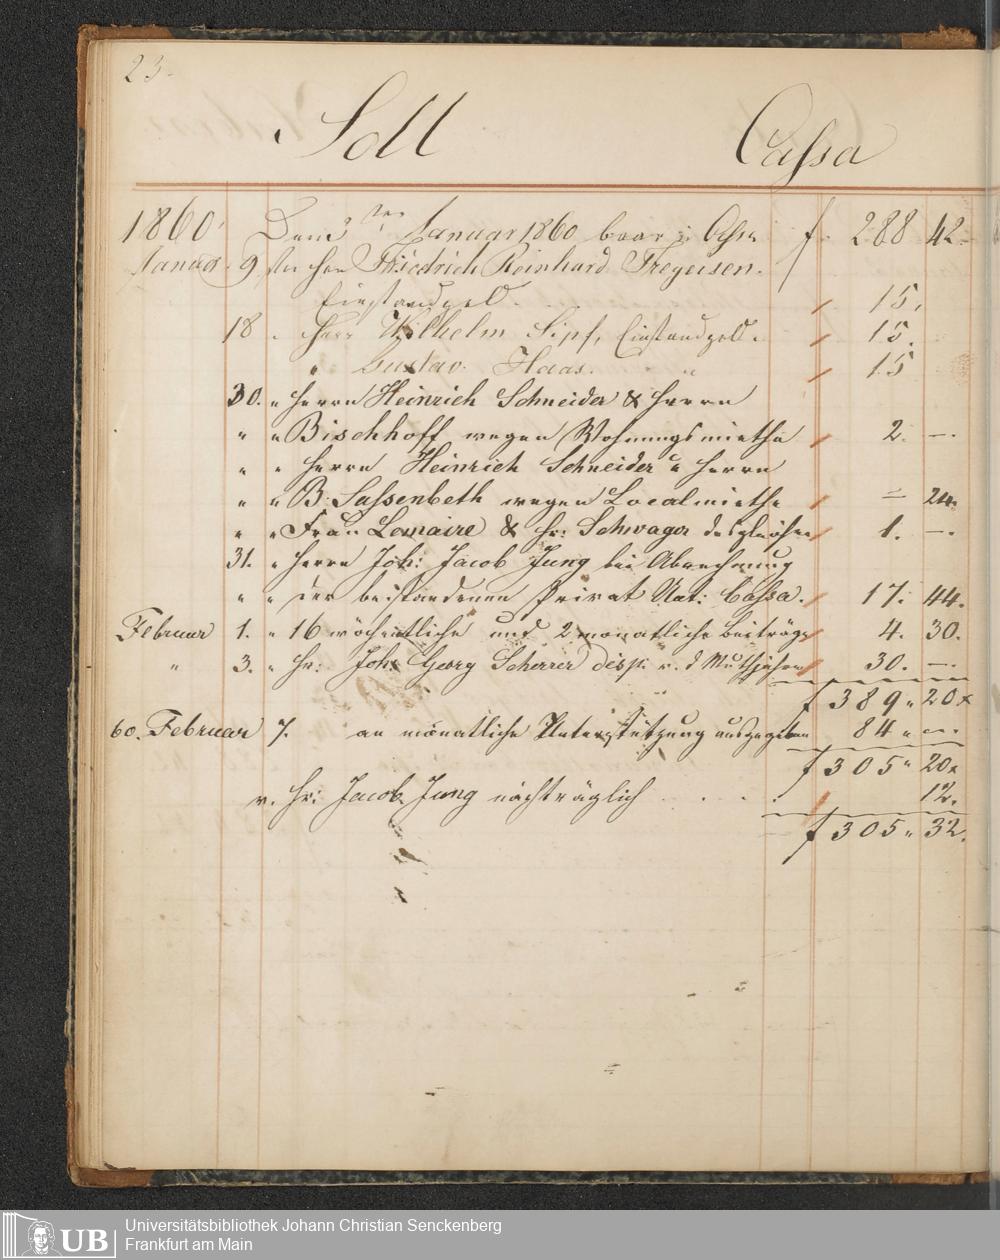 23.
Soll Cassa
1860 Dem 2ten Januar 1860 baar in Cassa f. 288 42.
Januar 9 Herr Friedrich Reinhard Tregeisen.
Einstandgeld. 15.
18 " Herr Wilhelm Sipf, Einstandgeld. 15.
" Gustav Haas. " 15
30. " Herrn Heinrich Schneider & Herrn
" " Bischhoff wegen Wohnungsmiethe 2. —.
" " Herrn Heinrich Schneider u Herrn
" " B. Sassenbeth wegen Localmiethe = 24.
" " Frau Lemaire & Hr: Schwager desgleichen 1. —.
31. " Herrn Joh: Jacob Jung bei Abrechnung
" " der bestandenen Privat Unt: Cassa. 17. 44.
Februar 1. " 16 wöchentliche und 2 monatliche Beiträge 4. 30.
" 3. " Hr: Joh: Georg Scherrer 30. —.
f 389 " 20 x
60. Februar 7. an monatliche Unterstützung ausgegeben 84 " —.
f 305 " 20 x
v. Hr: Jacob Jung nachträglich . . . . 12.
f 305 " 32.
UB Universitätsbibliothek Johann Christian Senckenberg
Frankfurt am Main